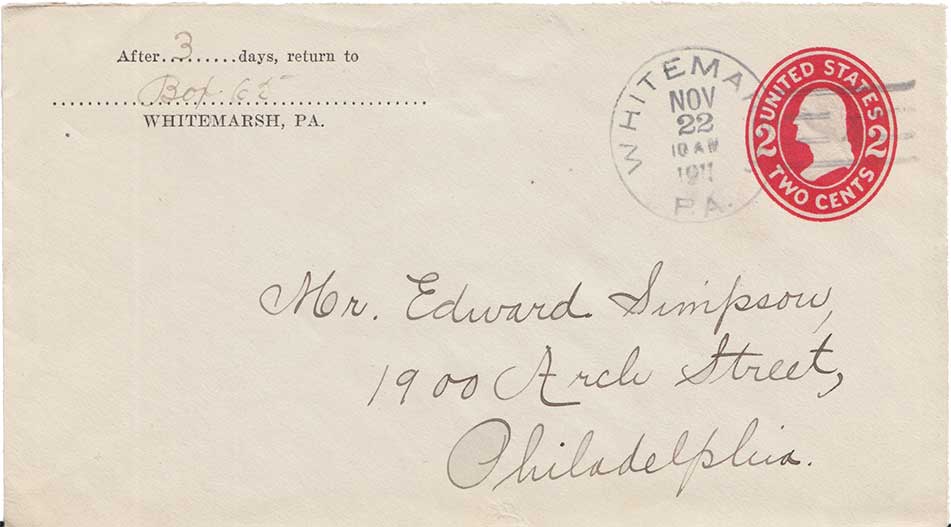 After..3.......days, return to
Box 65
WHITEMARSH, PA.
WHITEMA
NOV
22
10 AM
1911
PA.
UNITED STATES
2 2
TWO CENTS
Mr. Edward Simpson,
1900 Arch Street,
Philadelphia.